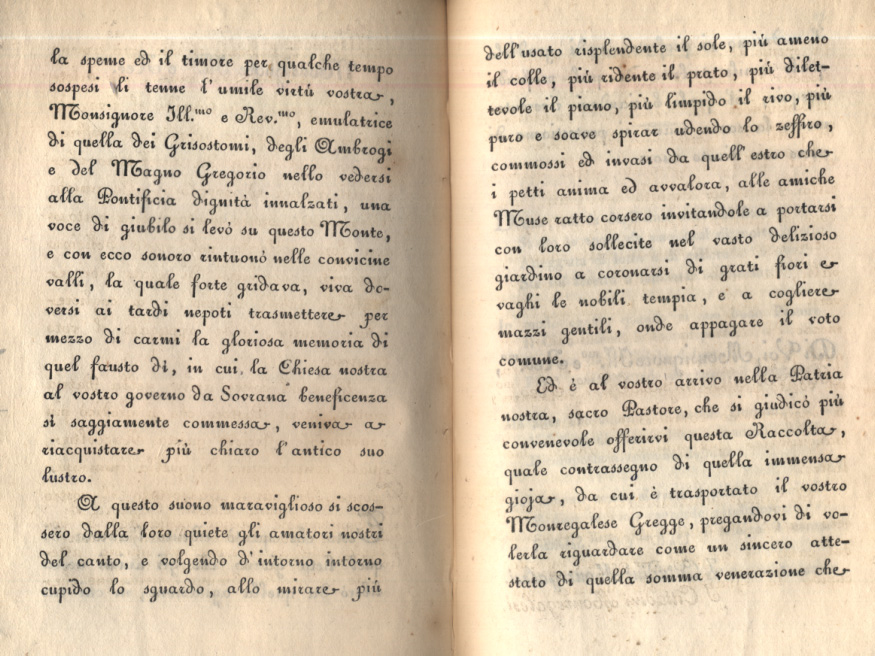 la speme ed il timore per qualche tempo
sospesi li tenne l'umile virtù vostra,
Monsignore Ill.mo e Rev.mo, emulatrice
di quella dei Grisostomi, degli Ambrogi
e del Magno Gregorio nello vedersi
alla Pontificia dignità innalzati, una
voce di giubilo si levò su questo Monte,
e con ecco sonoro rintuonò nelle convicine
valli, la quale forte gridava, viva do-
versi ai tardi nepoti trasmettere per
mezzo di carmi la gloriosa memoria di
quel fausto dì, in cui la Chiesa nostra
al vostro governo da Sovrana beneficenza
sì saggiamente commessa, veniva a
riacquistare più chiaro l'antico suo
lustro.
A questo suono maraviglioso si scos-
sero dalla loro quiete gli amatori nostri
del canto, e volgendo d'intorno intorno
cupido lo sguardo, allo mirare più
dell'usato risplendente il sole, più ameno
il colle, più ridente il prato, più dilet-
tevole il piano, più limpido il rivo, più
puro e soave spirar udendo lo zeffiro,
commossi ed invasi da quell'estro che
i petti anima ed avvalora, alle amiche
Muse ratto corsero invitandole a portarsi
con loro sollecite nel vasto delizioso
giardino a coronarsi di grati fiori e
vaghi le nobili tempia, e a cogliere
mazzi gentili, onde appagare il voto
comune.
Ed è al vostro arrivo nella Patria
nostra, sacro Pastore, che si giudicò più
convenevole offerirvi questa Raccolta,
quale contrassegno di quella immensa
gioja, da cui è trasportato il vostro
Monregalese Gregge, pregandovi di vo-
lerla riguardare come un sincero atte-
stato di quella somma venerazione che